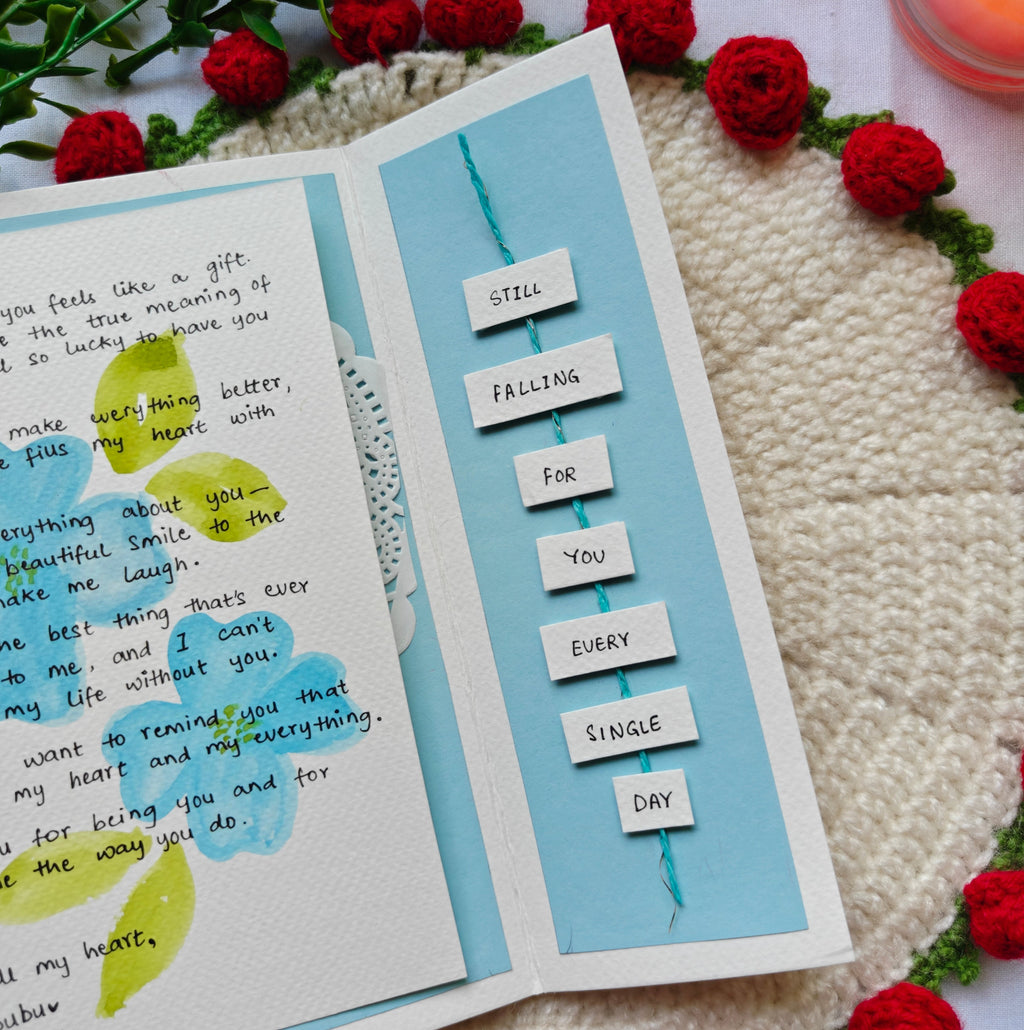 you feels like a gift.
the true meaning of
so lucky to have you
make everything better,
fius my heart with
erything about you—
beautiful smile to the
make me laugh.
he best thing that's ever
to me, and I can't
my life without you.
want to remind you that
my heart and my everything.
u for being you and for
the way you do.
my heart,
bubu♥
STILL
FALLING
FOR
YOU
EVERY
SINGLE
DAY